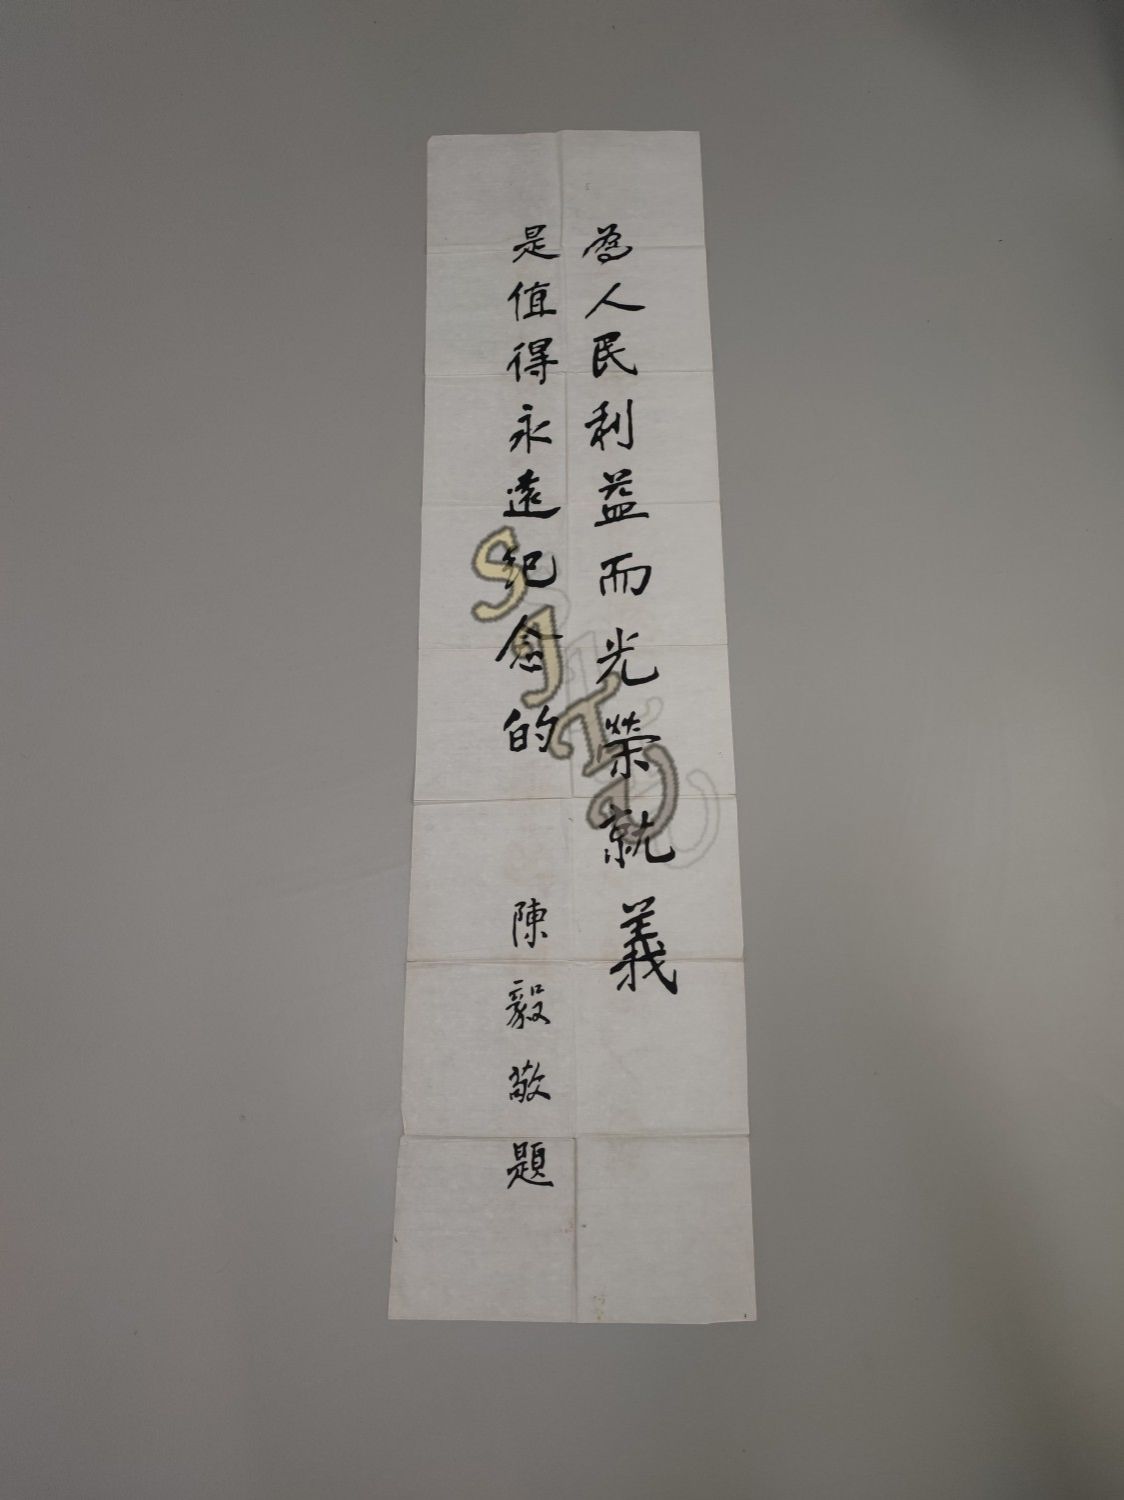 為人民利益而光榮就義
是值得永遠紀念的
陳毅敬題
SJTD